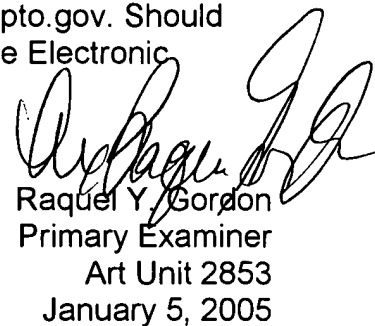 pto.gov. Should
e Electronic
Raquel Y. Gordon
Primary Examiner
Art Unit 2853
January 5, 2005